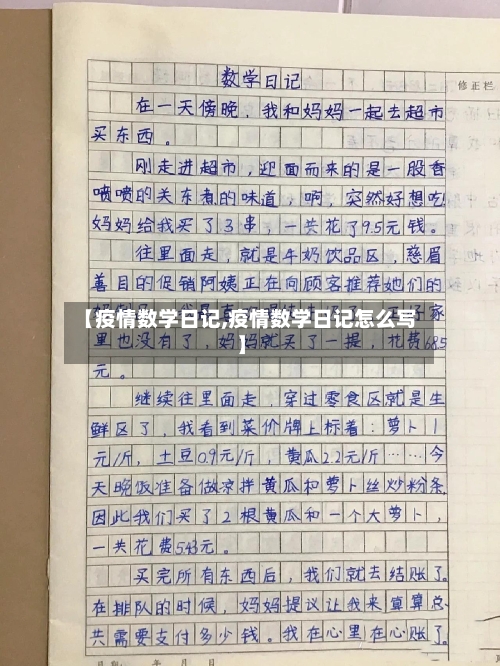 数学日记
修正栏
在一天傍晚，我和妈妈一起去超市
买东西。
刚走进超市，迎面而来的是一股香
喷喷的关东煮的味道，啊，突然好想吃!
妈妈给我买了3串，一共花了9.5元钱。
往里面走，就是牛奶饮品区，慈眉
善目的促销阿姨正在向顾客推荐她们的
【疫情数学日记,疫情数学日记怎么写
】
家
里也没有了，妈妈就买了一提，花费68.5
元。
继续往里面走，穿过零食区就是生
鲜区了，我看到菜价牌上标着：萝卜1
元/斤，土豆0.9元/斤，黄瓜2.2元/斤……今
天晚饭准备做凉拌黄瓜和萝卜丝炒粉条，
因此我们买了2根黄瓜和一个大萝卜，
一共花费5.43元。
买完所有东西后，我们就去结账了。
在排队的时候，妈妈提议让我来算算总
共需要支付多少钱。我在心里在心账了。
年 月 日